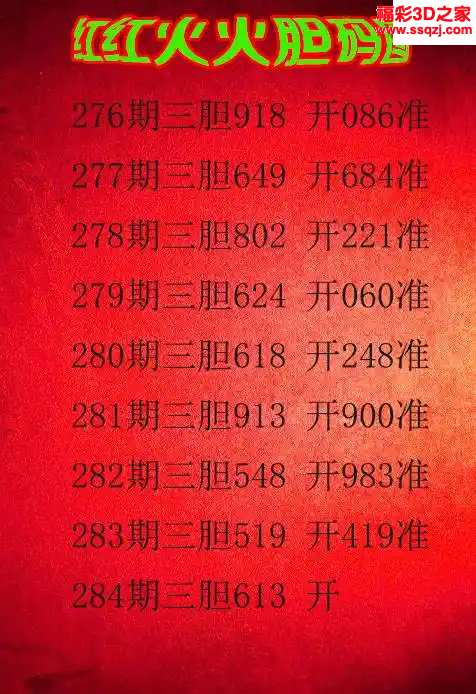 福彩3D之家
www.ssqzj.com
红红火火胆码图
276期三胆918 开086准
277期三胆649 开684准
278期三胆802 开221准
279期三胆624 开060准
280期三胆618 开248准
281期三胆913 开900准
282期三胆548 开983准
283期三胆519 开419准
284期三胆613 开